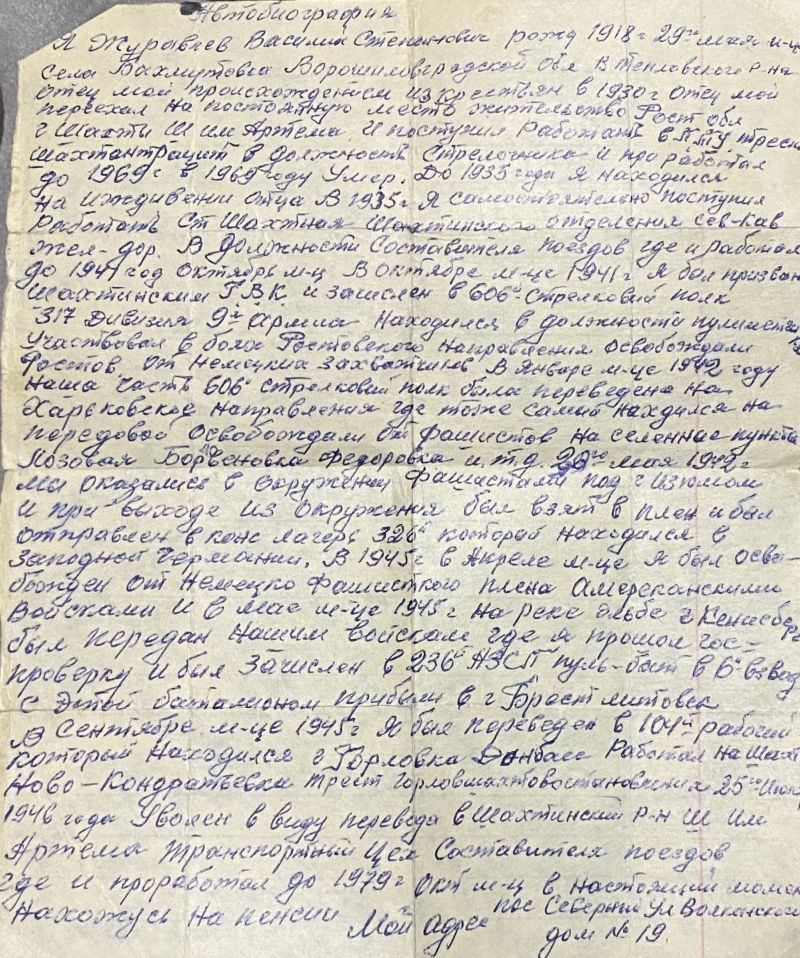 Автобиография
Я Журавлев Василий Степанович рожд 1918 г 29го мая м-ц
села Бахмутовка Ворошиловградской обл В тепловского р-на
отец мой происхождением из крестьян в 1930 г отец мой
переехал на постоятную место жительство Рост обл
г Шахти Ш им Артема и поступил Работать в П.Т.У треста
шахтантрацит в должность Стрелочника и проработал
до 1969 г в 1969 году Умер. До 1935 года я находился
на иждивении отца В 1935 г я самостоятельно поступил
Работать Ст Шахтная Шахтинского отделения Сев-Кав
жел-дор. В должности Составителя поездов где и работал
до 1941 год октябрь м-ц В октябре м-це 1941 г я был призван
Шахтинским Г.В.К. и зачислен в 606й Стрелковий полк
317 Дивизия 9й Армиа находился в должности
Участвовал в боях Ростовского направления освобождали
Ростов от немецких захватчиков В Январе м-це 1942 году
наша часть 606й стрелковий полк была переведена на
Харьковское направления где тоже самий находился на
передовой Освобождали от фашистов на селеннае пункта
Лозовая Борвеновка Федоровка и.т.д. 20го мая 1942 г
мы оказались в окружении фашистами под г Изюмом
и при выходе из окружения был взят в плен и был
отправлен в конс лагерь 326й которий находился в
западной Германии. В 1945 г в Апреле м-це я был осво-
божден от немецко фашисткого плена Амереканскими
Войсками и в мае м-це 1945 г на реке Эльбе г
был передан нашим войскам где я прошол гос-
проверку и был зачислен в 236й АЗСП пуль-бат в 6й взвод
с этой баталионом прибыли в г Брестлитовск
В Сентябре м-це 1945 г я был переведен в 104й рабочий
который находился г Горловка Донбасс Работал на Шах
Ново-Кондратьевка трест 25го
1946 года Уволен в виду перевода в Шахтинский р-н Ш им
Артема транспортный цех Составителя поездов
где и проработал до 1979 г окт м-ц в настоящий момен
нахожусь на пенсии Мой адрес пос Северний Ул
дом № 19.